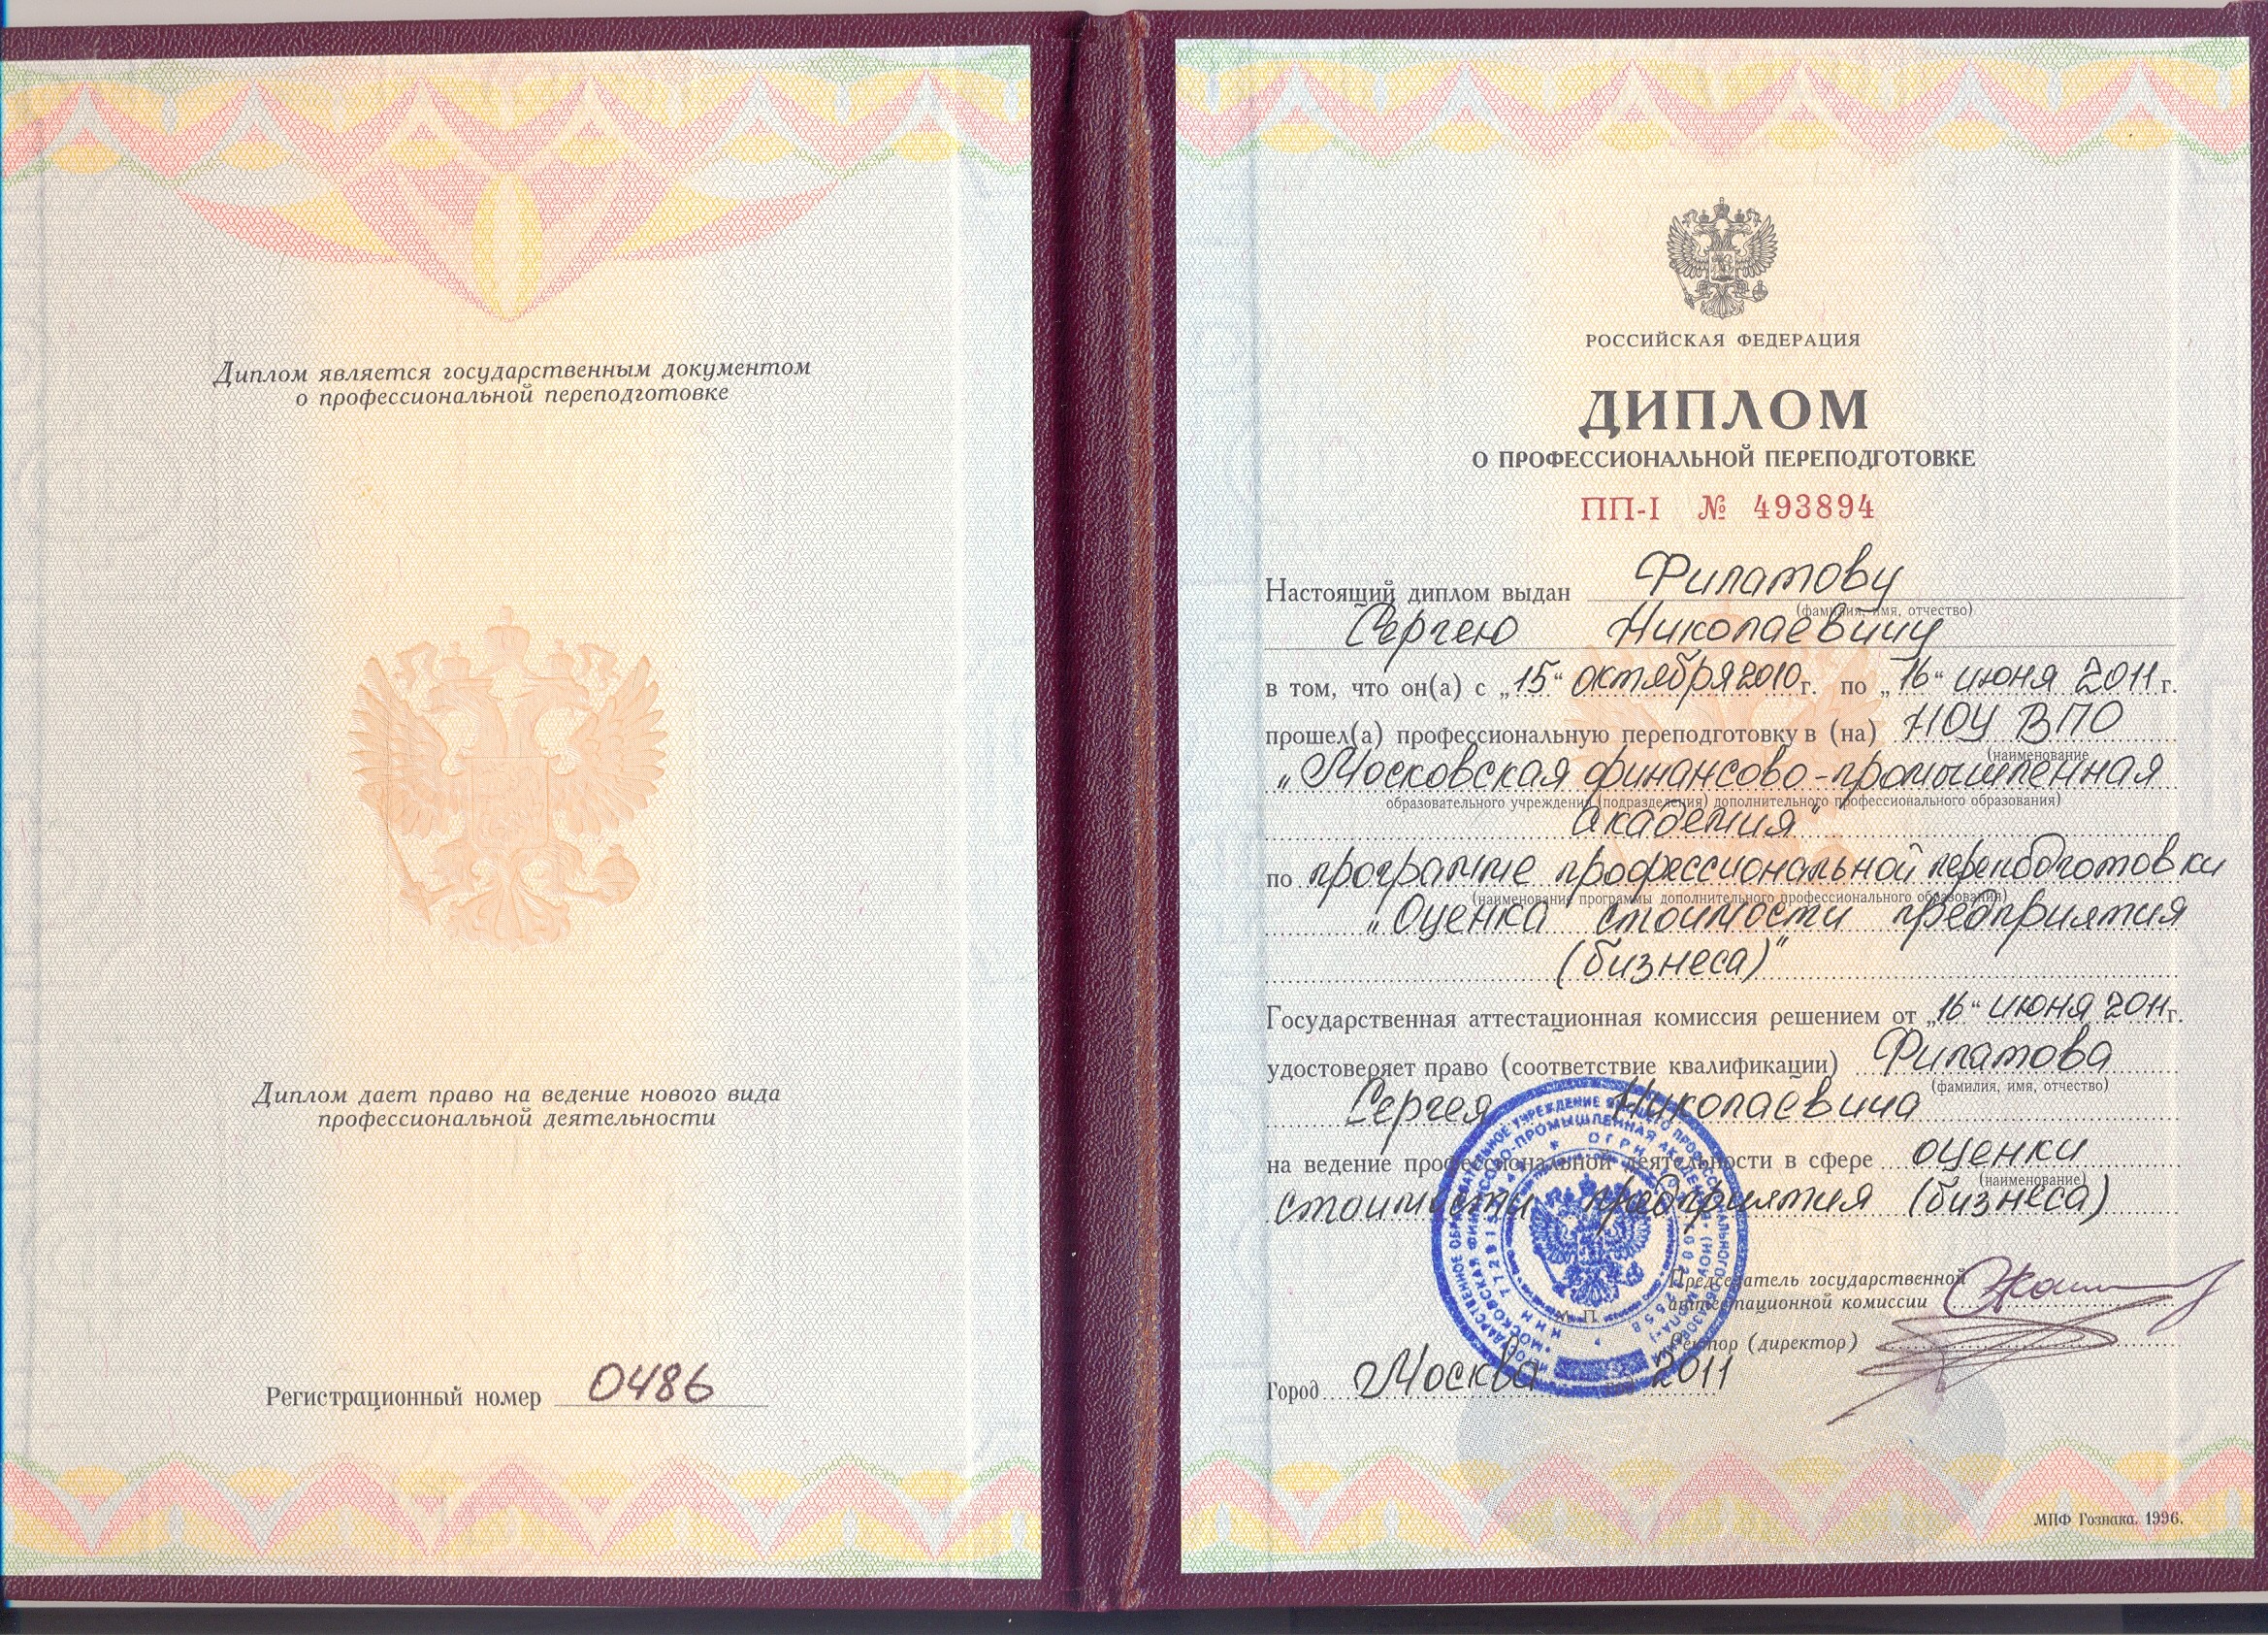 Диплом является государственным документом
о профессиональной переподготовке
Диплом дает право на ведение нового вида
профессиональной деятельности
Регистрационный номер 0486
РОССИЙСКАЯ ФЕДЕРАЦИЯ
ДИПЛОМ
О ПРОФЕССИОНАЛЬНОЙ ПЕРЕПОДГОТОВКЕ
ПП-I № 493894
Настоящий диплом выдан Филатову
(фамилия, имя, отчество)
Сергею Николаевичу
в том, что он(а) с „15“ октября 2010 г. по „16“ июня 2011 г.
прошел(а) профессиональную переподготовку в (на) НОУ ВПО
(наименование
„Московская финансово-промышленная
образовательного учреждения (подразделения) дополнительного профессионального образования)
академия"
по программе профессиональной переподготовки
(наименование программы дополнительного профессионального образования)
„Оценка стоимости предприятия
(бизнеса)"
Государственная аттестационная комиссия решением от „16“ июня 2011 г.
удостоверяет право (соответствие квалификации) Филатова
(фамилия, имя, отчество)
Сергея Николаевича
на ведение профессиональной деятельности в сфере оценки
(наименование)
стоимости предприятия (бизнеса)
Председатель государственной
аттестационной комиссии
М. П.
Ректор (директор)
Город Москва 2011
МПФ Гознака. 1996.